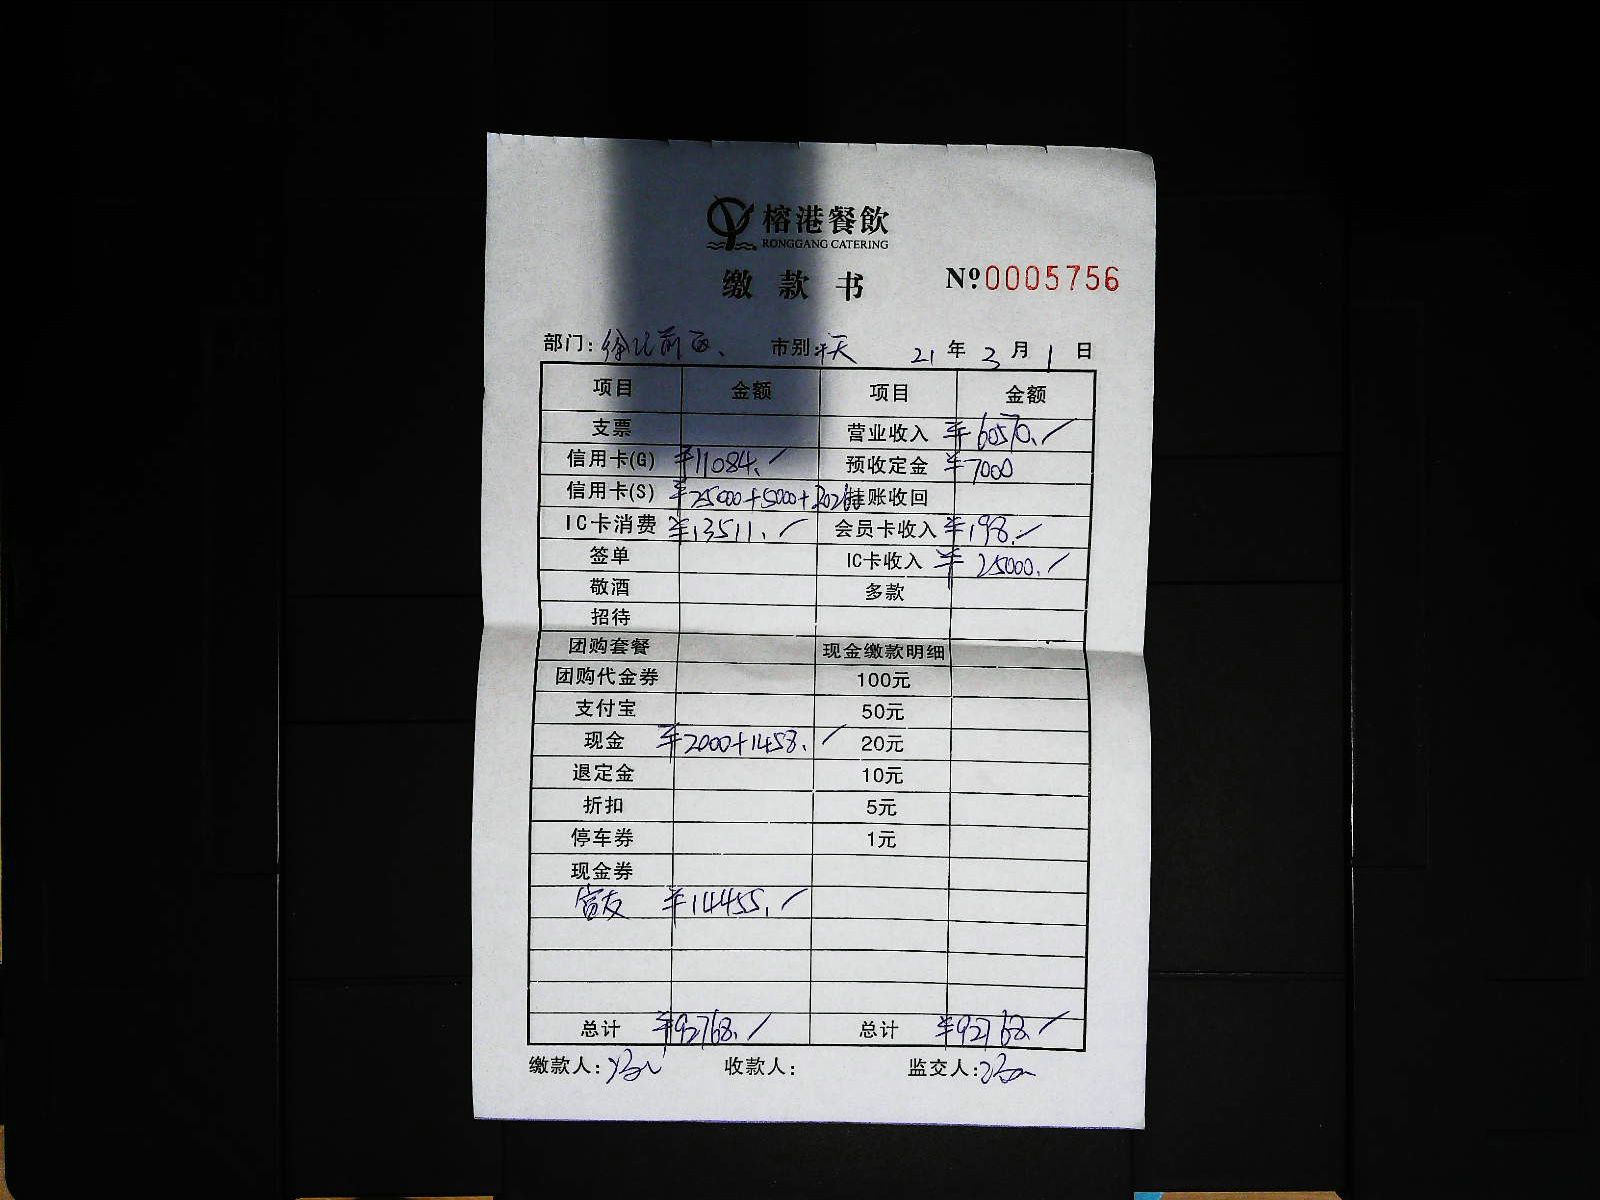 榕港餐飲
RONGGANG CATERING
缴款书 Nº 0005756
部门: 徐汇前 市别: 全天 21年3月1日
项目 金额 项目 金额
支票 营业收入 ¥60570.
信用卡(G) ¥11084. 预收定金 ¥7000
信用卡(S) ¥25000+5000+ 挂账收回
IC卡消费 ¥13511. 会员卡收入 ¥198.
签单 IC卡收入 ¥25000.
敬酒 多款
招待
团购套餐 现金缴款明细
团购代金券 100元
支付宝 50元
现金 ¥2000+1458. 20元
退定金 10元
折扣 5元
停车券 1元
现金券
富友 ¥14455.
总计 ¥92768. 总计 ¥92768.
缴款人: 收款人: 监交人: